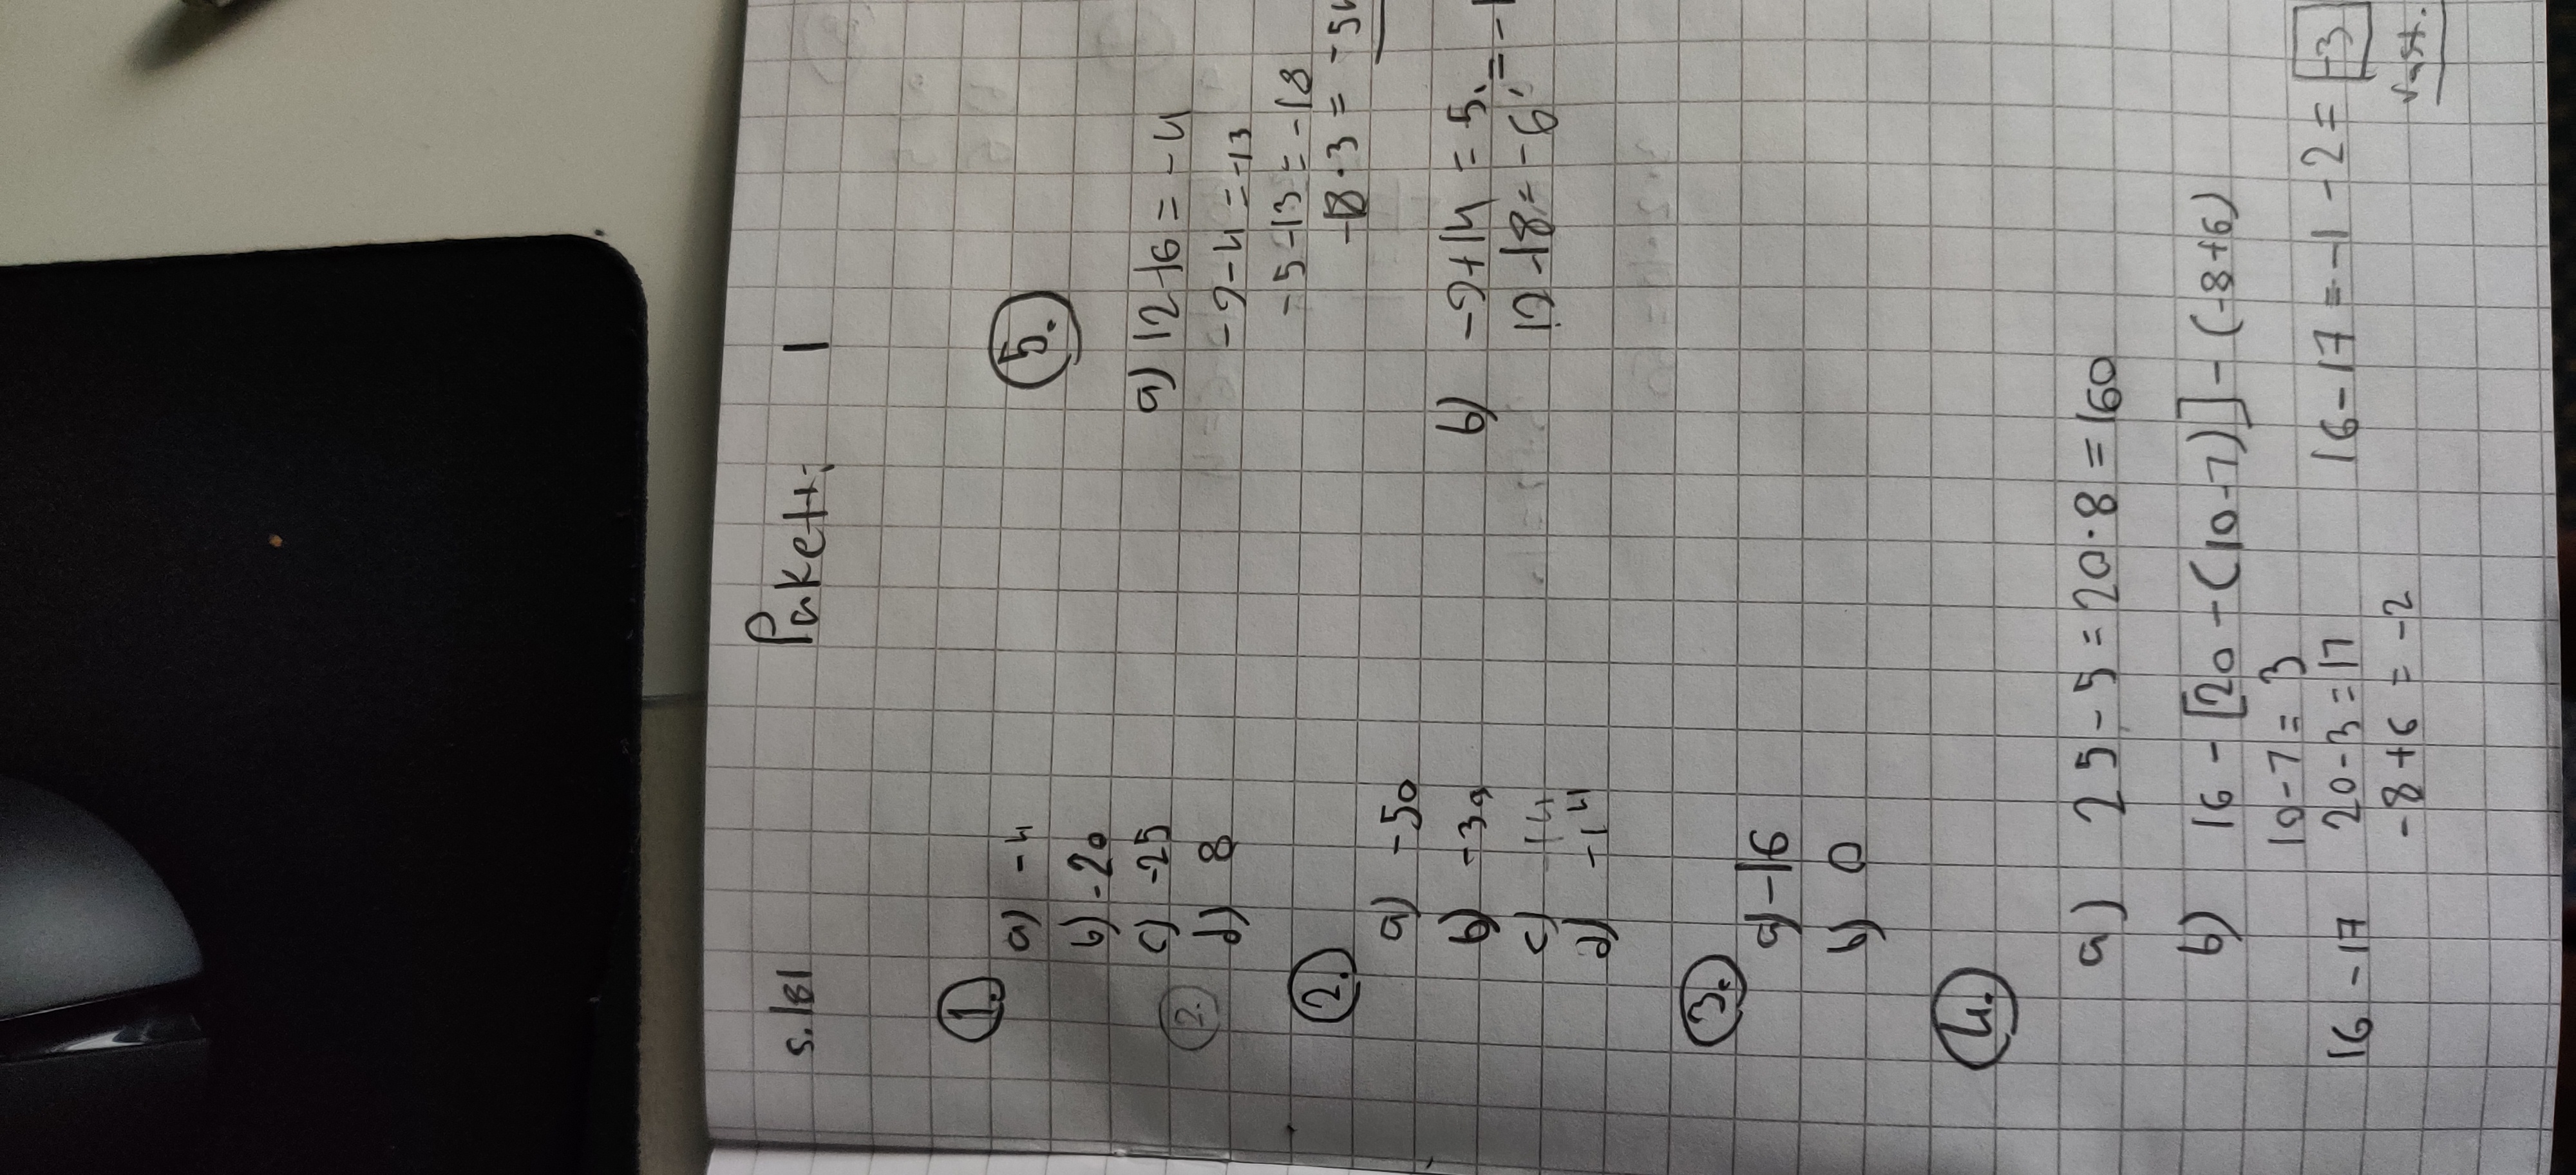 s.181 Paketti 1
1.
a) -4
b) -20
c) -25
d) 8
2.
2.
a) -50
b) -39
c) 14
d) -14
3.
a) -16
b) 0
4.
a) 25-5=20·8=160
b) 16-[20-(10-7)]-(-8+6)
10-7=3
16-17 20-3=17 16-17=-1-2=-3
-8+6=-2 vast.
5.
a) 12-16=-4
-9-4=-13
-5-13=-18
-18·3=-54
b) -9+14=5
12-18=-6